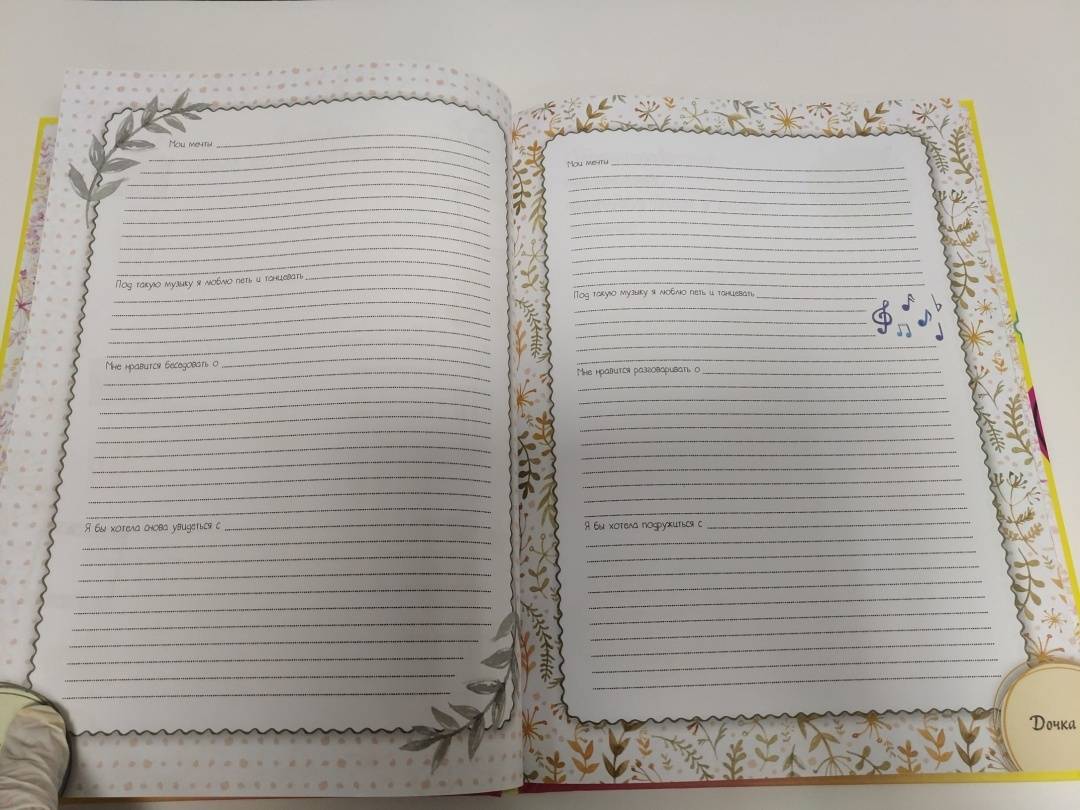 Мои мечты
Под такую музыку я люблю петь и танцевать
Мне нравится беседовать о
Я бы хотела снова увидеться с
Мои мечты
Под такую музыку я люблю петь и танцевать
Мне нравится разговаривать о
Я бы хотела подружиться с
Дочка